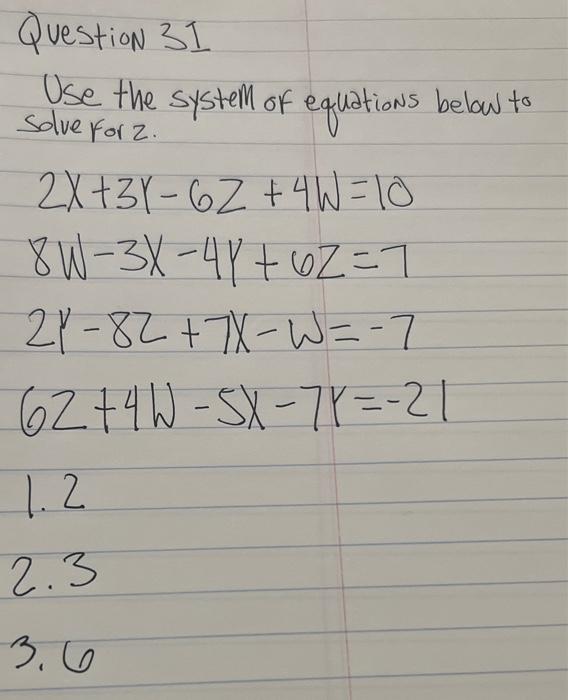 Question 31
Use the system of equations below to
solve for z.
2X+3Y-6Z+4W=10
8W-3X-4Y+6Z=7
2Y-8Z+7X-W=-7
6Z+4W-5X-7Y=-21
1. 2
2. 3
3. 6